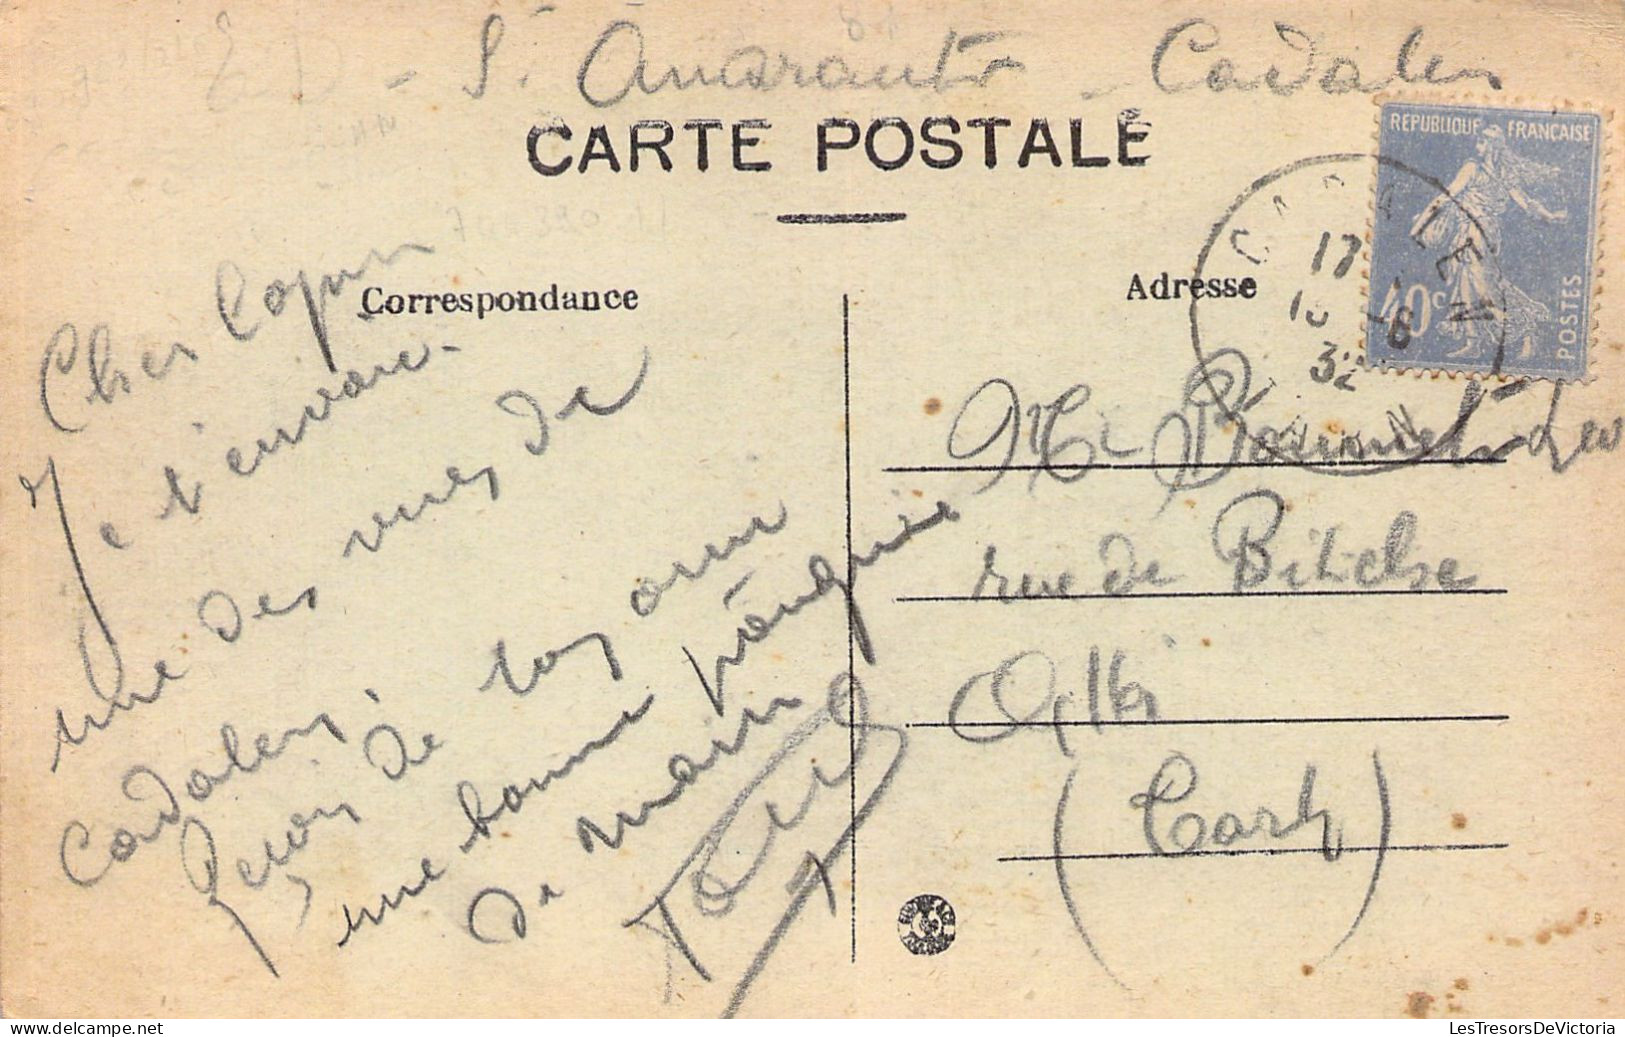 St Amarante - Cadalen
CARTE POSTALE
REPUBLIQUE FRANÇAISE
40c
POSTES
CADALEN
17
10 6
32
TARN
Correspondance
Cher Copin
Je t'envoie
une des vues de
Cadalen.
Reçois de ton ami
une bonne poignée
de main
Adresse
Mr
rue de Bitche
Albi
(Tarn)
LesTresorsDeVictoria